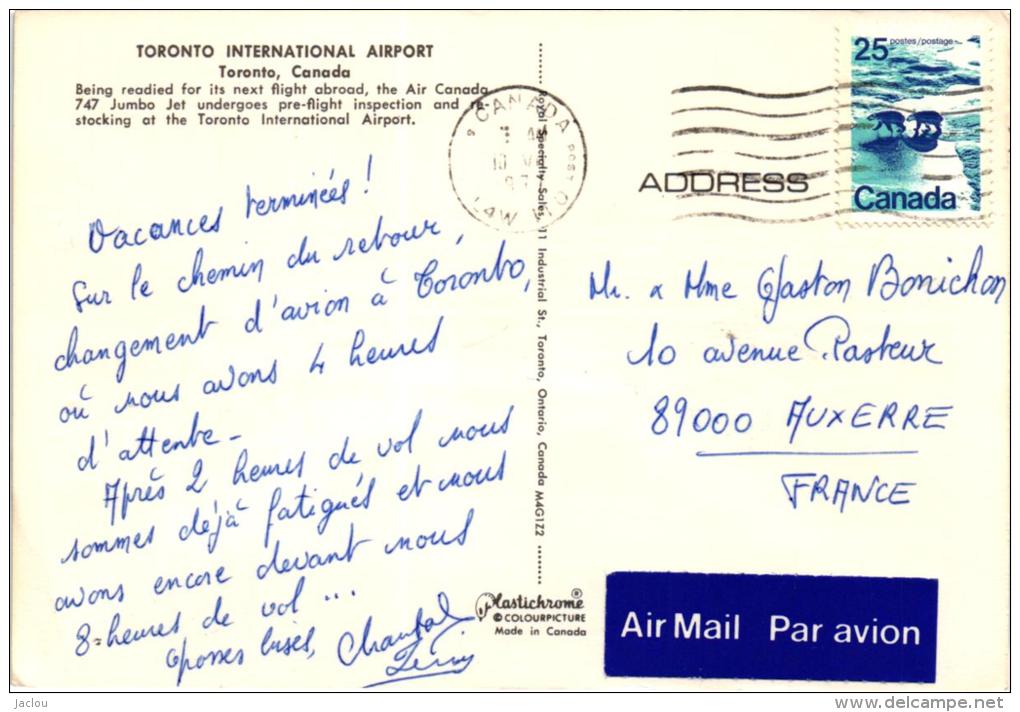 TORONTO INTERNATIONAL AIRPORT
Toronto, Canada
Being readied for its next flight abroad, the Air Canada
747 Jumbo Jet undergoes pre-flight inspection and re-
stocking at the Toronto International Airport.
Vacances terminées !
Sur le chemin du retour,
changement d'avion à Toronto,
où nous avons 4 heures
d'attente -
Après 2 heures de vol nous
sommes déjà fatigués et nous
avons encore devant nous
8 heures de vol ...
Grosses bises, Chantal
Royal Specialty Sales, 11 Industrial St., Toronto, Ontario, Canada M4G1Z2
Plastichrome ®
© COLOURPICTURE
Made in Canada
CANADA
POST
ADDRESS
25 postes/postage
Canada
Mr. & Mme Gaston Bonichon
10 avenue Pasteur
89000 AUXERRE
FRANCE
Air Mail Par avion
Jaclou
www.delcampe.net